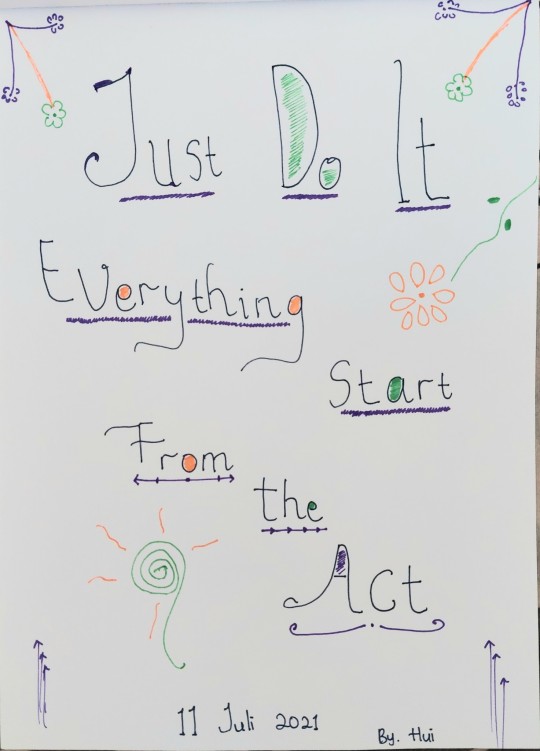 Just Do It
Everything
Start
From
the
Act
11 Juli 2021
By. Hui